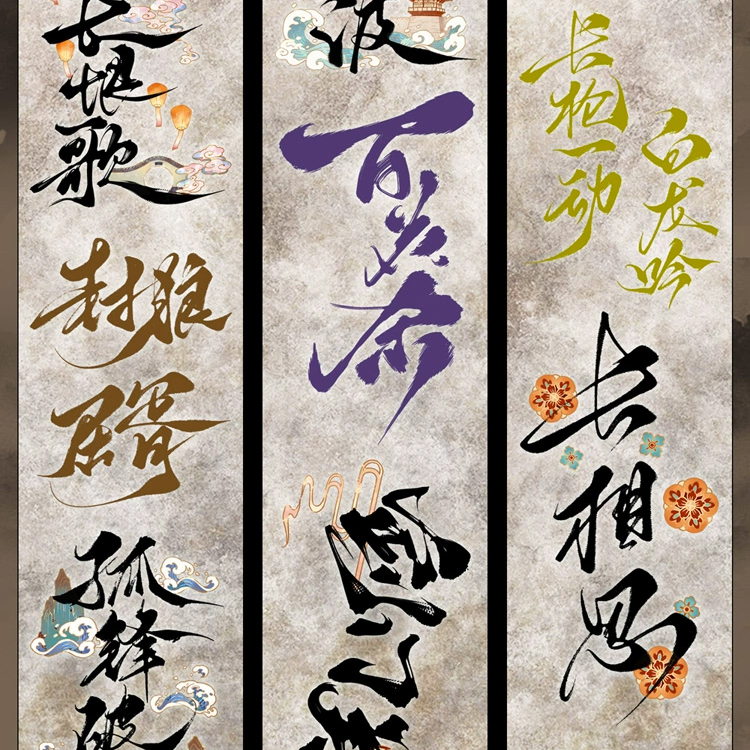 长恨歌
封狼
居胥
孤锋破
百花杀
长枪一动
白龙吟
长相思